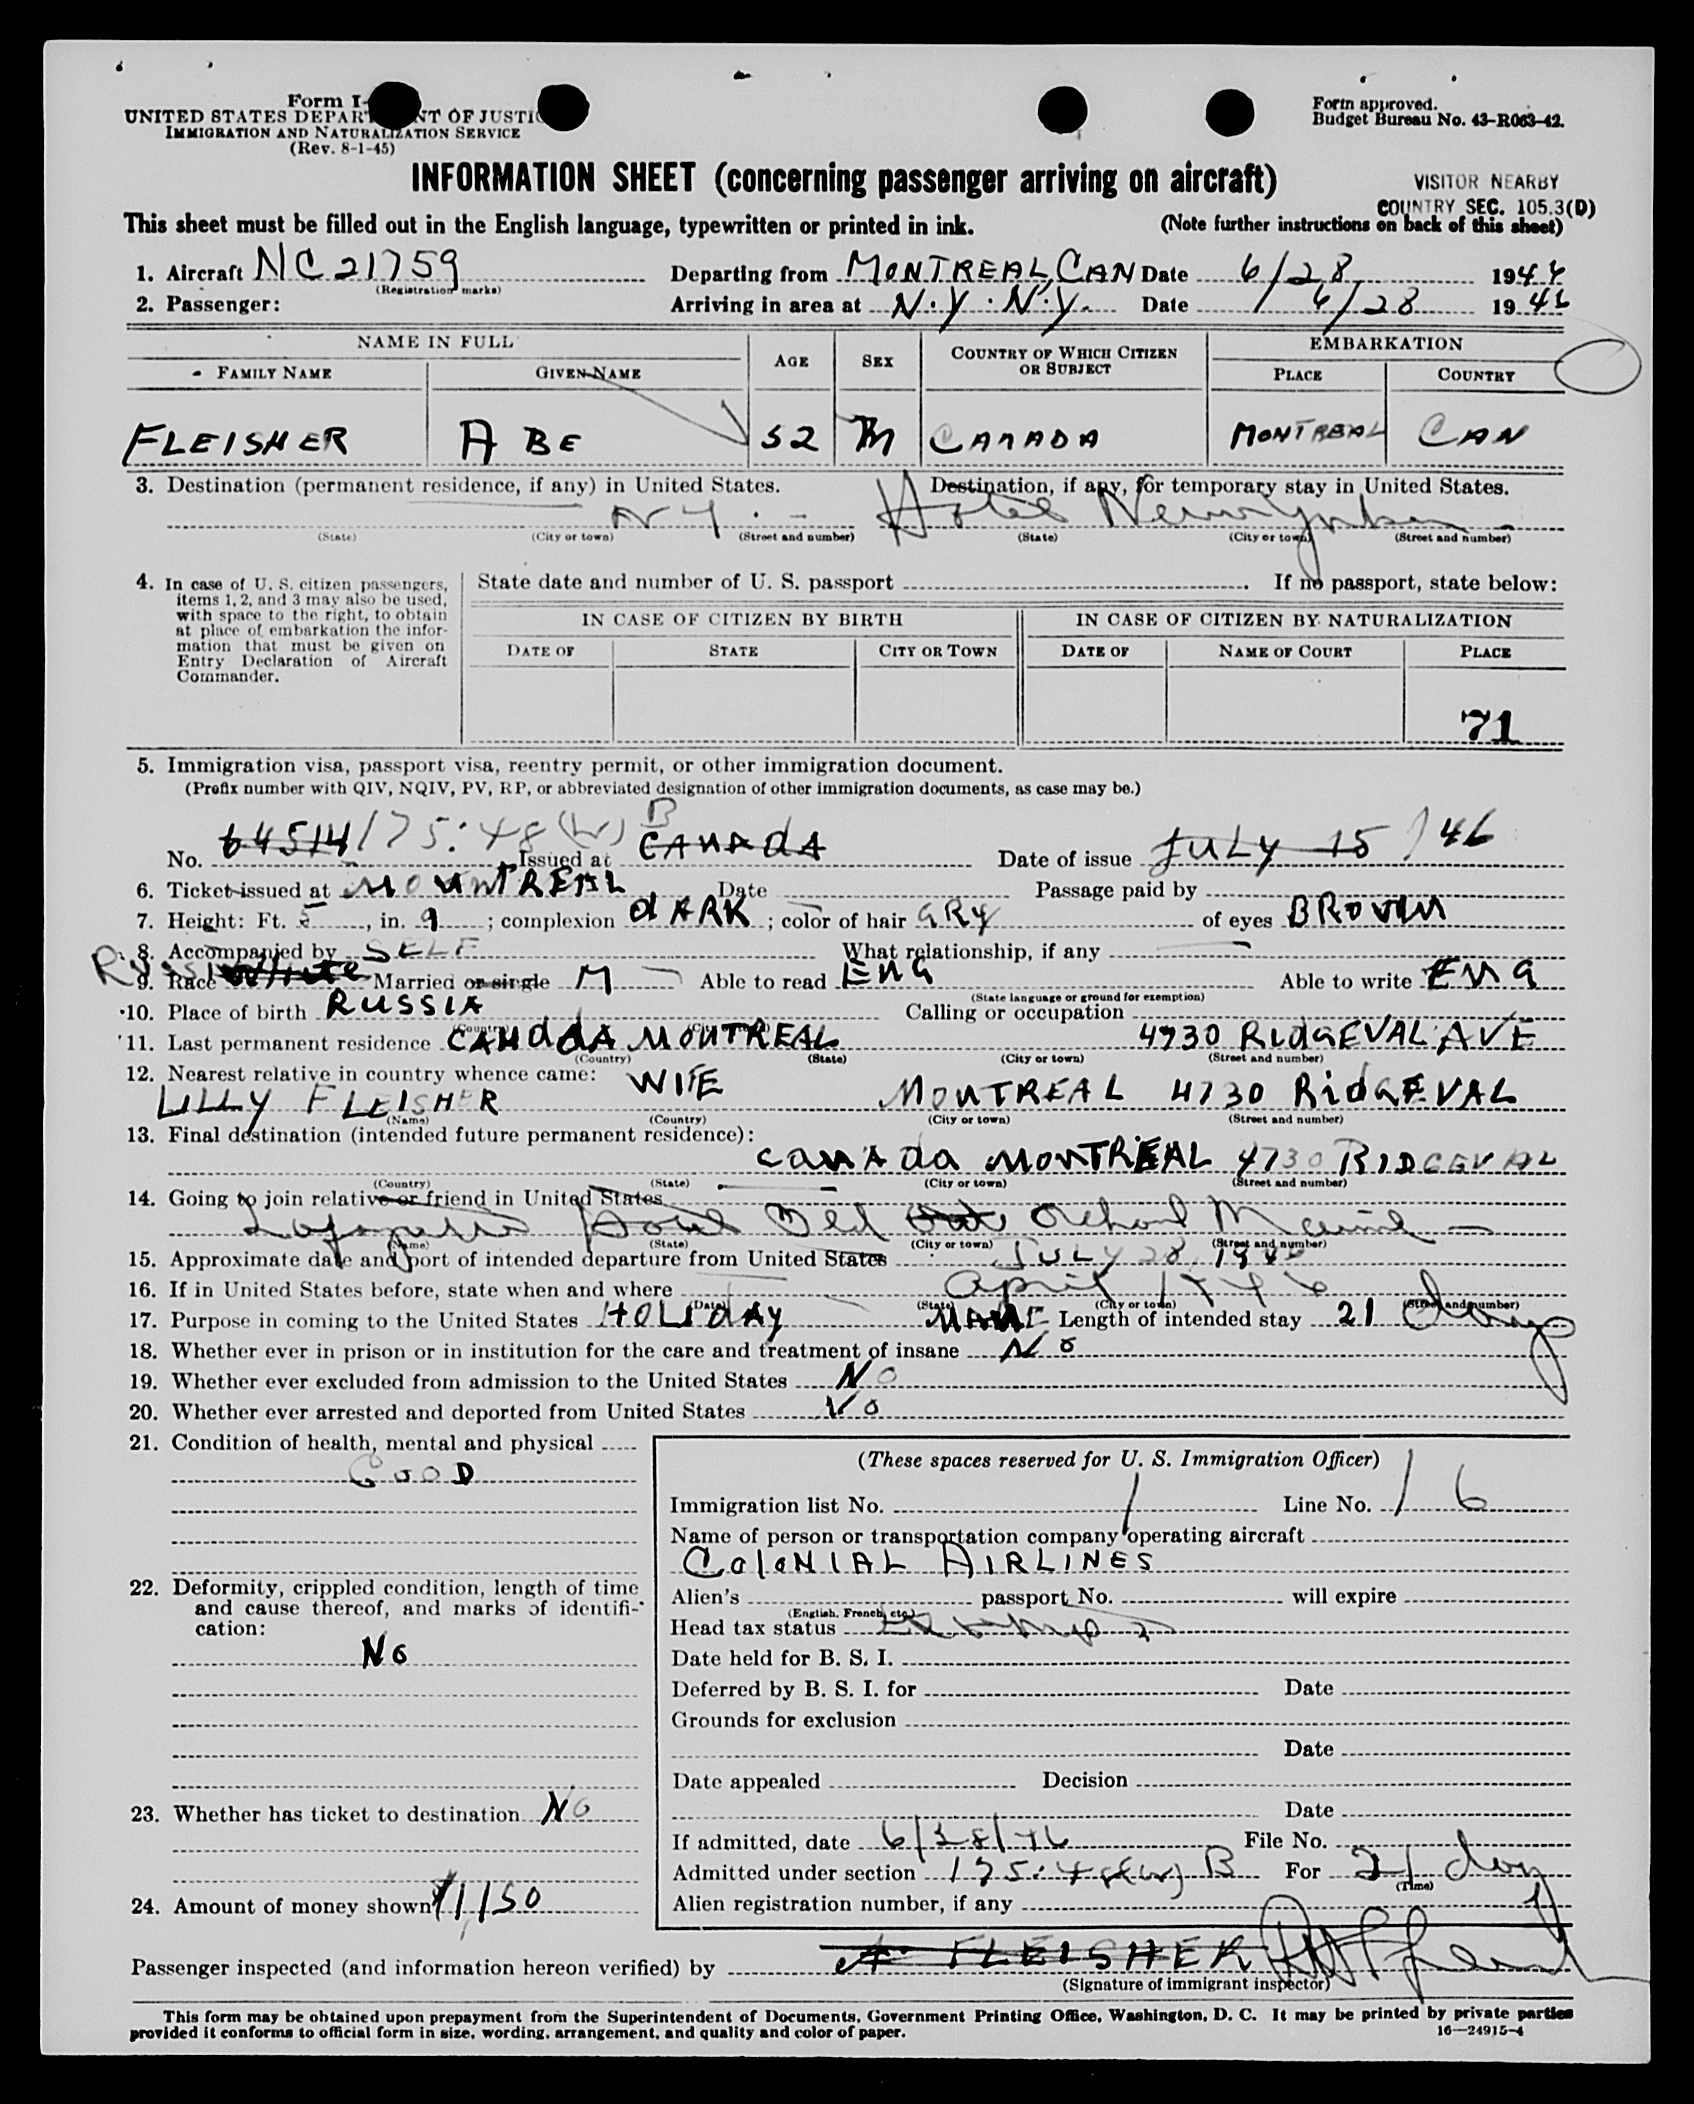 Form I-
UNITED STATES DEPARTMENT OF JUSTICE
IMMIGRATION AND NATURALIZATION SERVICE
(Rev. 8-1-45)
Form approved.
Budget Bureau No. 43-R063-42.
INFORMATION SHEET (concerning passenger arriving on aircraft)
VISITOR NEARBY
COUNTRY SEC. 105.3(D)
This sheet must be filled out in the English language, typewritten or printed in ink. (Note further instructions on back of this sheet)
1. Aircraft NC 21759 Departing from MONTREAL, CAN Date 6/28 1946
(Registration marks)
2. Passenger: Arriving in area at N.Y. N.Y. Date 6/28 1946
NAME IN FULL EMBARKATION
FAMILY NAME GIVEN NAME AGE SEX COUNTRY OF WHICH CITIZEN OR SUBJECT PLACE COUNTRY
FLEISHER ABE 52 M CANADA MONTREAL CAN
3. Destination (permanent residence, if any) in United States. Destination, if any, for temporary stay in United States.
NY. - Hotel New Yorker -
(State) (City or town) (Street and number) (State) (City or town) (Street and number)
4. In case of U. S. citizen passengers, items 1, 2, and 3 may also be used, with space to the right, to obtain at place of embarkation the information that must be given on Entry Declaration of Aircraft Commander.
State date and number of U. S. passport If no passport, state below:
IN CASE OF CITIZEN BY BIRTH IN CASE OF CITIZEN BY NATURALIZATION
DATE OF STATE CITY OR TOWN DATE OF NAME OF COURT PLACE
71
5. Immigration visa, passport visa, reentry permit, or other immigration document.
(Prefix number with QIV, NQIV, PV, RP, or abbreviated designation of other immigration documents, as case may be.)
No. 64514 175.48(W) B Issued at CANADA Date of issue JULY 15 / 46
6. Ticket issued at MOUNTREAL Date Passage paid by
7. Height: Ft. 5, in. 9; complexion DARK; color of hair GRY of eyes BROWN
8. Accompanied by SELF What relationship, if any
9. Race White Married or single M Able to read ENG Able to write ENG
(State language or ground for exemption)
10. Place of birth RUSSIA Calling or occupation
(Country) (City or town)
11. Last permanent residence CANADA MONTREAL 4730 RIDGEVAL AVE
(Country) (State) (City or town) (Street and number)
12. Nearest relative in country whence came: WIFE
LILLY FLEISHER MONTREAL 4730 RIDGEVAL
(Name) (Country) (City or town) (Street and number)
13. Final destination (intended future permanent residence):
CANADA MONTREAL 4730 RIDGEVAL
(Country) (State) (City or town) (Street and number)
14. Going to join relative or friend in United States
Lafayette Hotel Old Orchard Maine -
(Name) (State) (City or town) (Street and number)
15. Approximate date and port of intended departure from United States JULY 28, 1946
16. If in United States before, state when and where April 1946
(Date) (State) (City or town) (Street and number)
17. Purpose in coming to the United States HOLIDAY MAINE Length of intended stay 21 days
18. Whether ever in prison or in institution for the care and treatment of insane NO
19. Whether ever excluded from admission to the United States NO
20. Whether ever arrested and deported from United States NO
21. Condition of health, mental and physical
GOOD
22. Deformity, crippled condition, length of time and cause thereof, and marks of identification:
NO
23. Whether has ticket to destination NO
24. Amount of money shown $150
(These spaces reserved for U. S. Immigration Officer)
Immigration list No. 1 Line No. 16
Name of person or transportation company operating aircraft
COLONIAL AIRLINES
Alien's passport No. will expire
(English, French, etc.)
Head tax status Exempt
Date held for B. S. I.
Deferred by B. S. I. for Date
Grounds for exclusion
Date
Date appealed Decision
Date
If admitted, date 6/28/46 File No.
Admitted under section 175.48(W) B For 21 days
(Time)
Alien registration number, if any
Passenger inspected (and information hereon verified) by A. FLEISHER
(Signature of immigrant inspector)
This form may be obtained upon prepayment from the Superintendent of Documents, Government Printing Office, Washington, D. C. It may be printed by private parties
provided it conforms to official form in size, wording, arrangement, and quality and color of paper. 16—24915-4